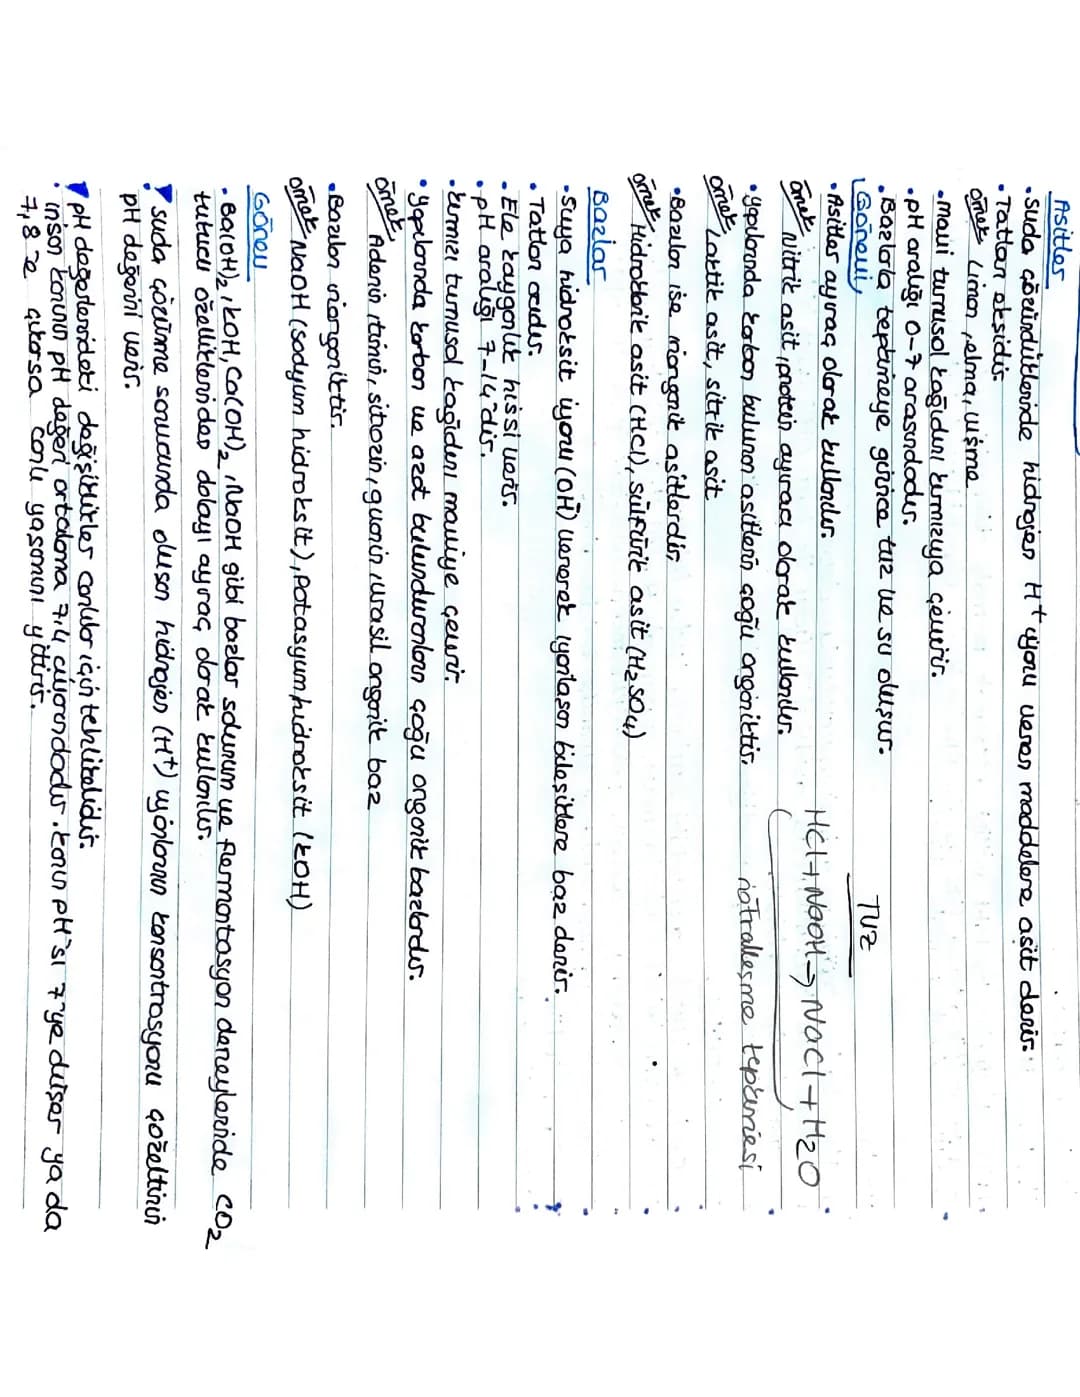 Asitler
• Suda çözündüklerinde hidrojen H⁺ iyonu veren maddelere asit denir.
• Tatları ekşidir.
örnek Limon, elma, vişne
• mavi turnusol kağıdını kırmızıya çevirir.
• pH aralığı 0-7 arasındadır.
• Bazlarla tepkimeye girince tuz ve su oluşur.
Görevi,
TUZ
• Asitler ayıraç olarak kullanılır.
HCl + NaOH → NaCl + H2O
örnek Nitrik asit, protein ayıracı olarak kullanılır.
nötralleşme tepkimesi
• yapılarında karbon bulunan asitlerin çoğu organiktir.
örnek Laktik asit, sitrik asit
• Bazıları ise inorganik asitlerdir.
örnek Hidroklorik asit (HCl), sülfürik asit (H2SO4)
Bazlar
• Suya hidroksit iyonu (OH⁻) vererek iyonlaşan bileşiklere baz denir.
• Tatları acıdır.
• Ele kayganlık hissi verir.
• pH aralığı 7-14'dir.
• kırmızı turnusol kağıdını maviye çevirir.
• yapılarında karbon ve azot bulunduranların çoğu organik bazlardır.
örnek Adenin, timin, sitozin, guanin, urasil organik baz
• Bazıları inorganiktir.
örnek NaOH (sodyum hidroksit), potasyum hidroksit (KOH)
Görev
• Ba(OH)2, KOH, Ca(OH)2, NaOH gibi bazlar solunum ve fermantasyon deneylerinde CO2
tutucu özelliklerinden dolayı ayıraç olarak kullanılır.
▼ suda çözünme sonucunda oluşan hidrojen (H⁺) iyonlarının konsantrasyonu çözeltinin
pH değerini verir.
▼ pH değerlerindeki değişiklikler canlılar için tehlikelidir.
• insan kanının pH değeri ortalama 7,4 civarındadır. kanın pH'sı 7'ye düşer ya da
7,8'e çıkarsa canlı yaşamını yitirir.